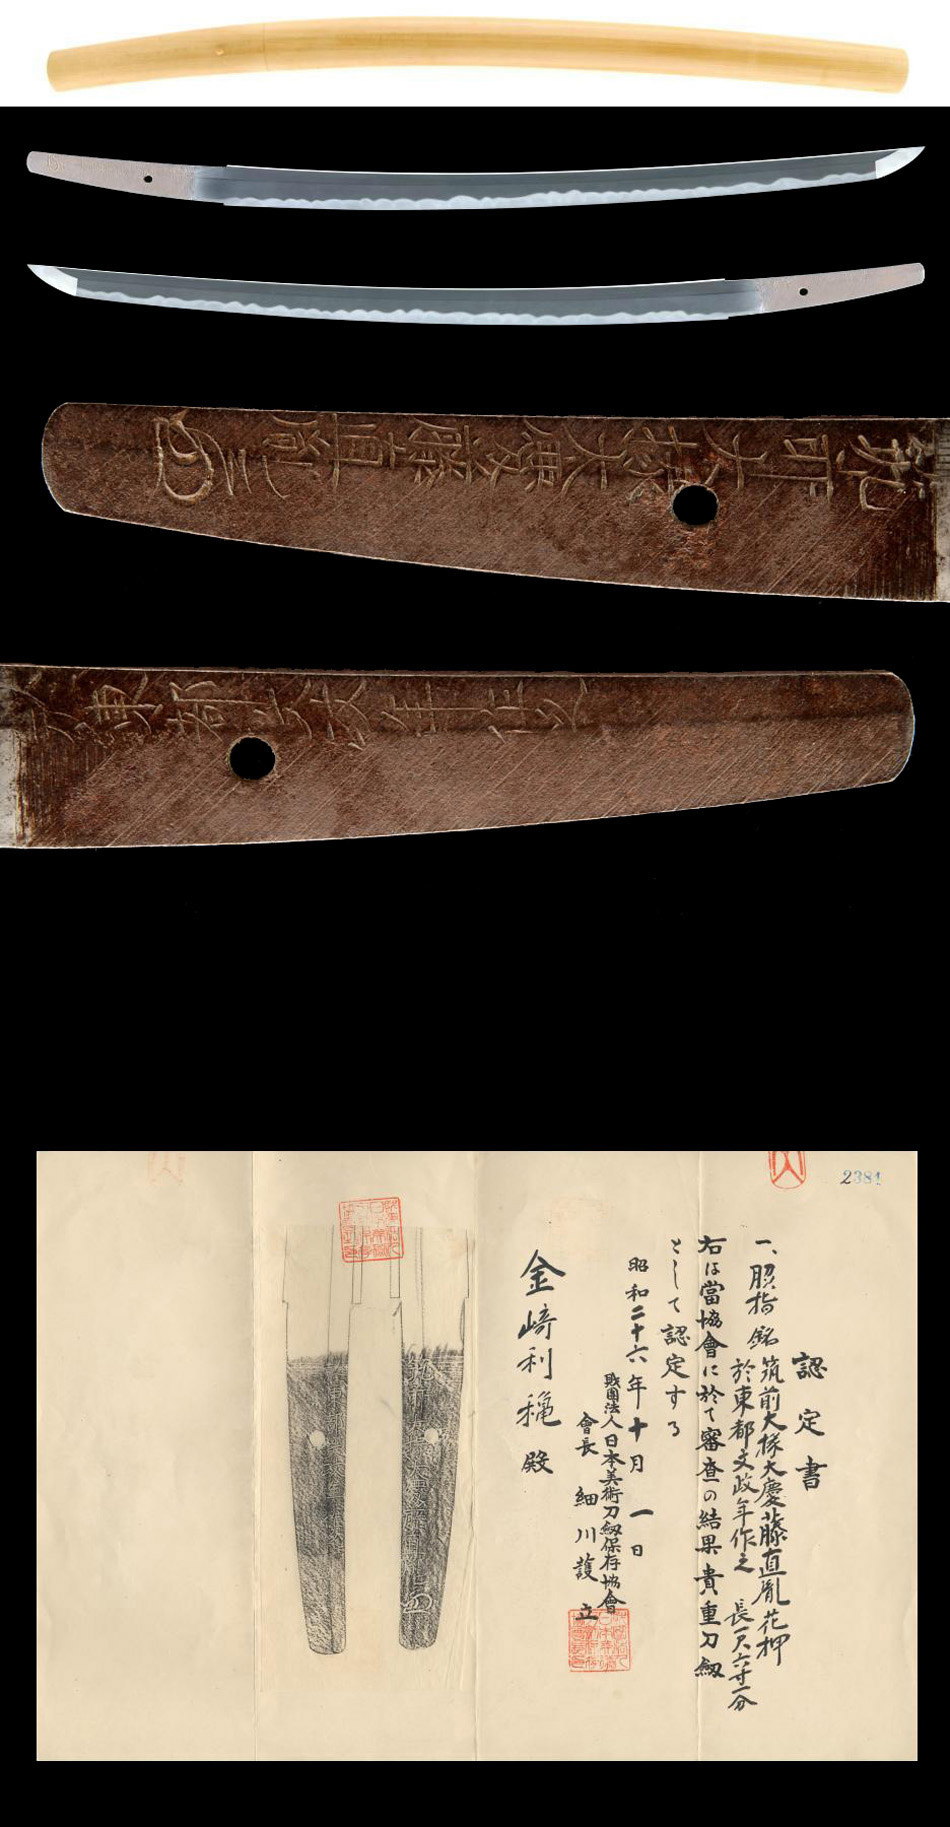 筑前大掾大慶藤直胤
於東都文政年作之
2381
認定書
一、脇指 銘 筑前大掾大慶藤直胤花押
於東都文政年作之 長一尺六寸一分
右は當協會に於て審査の結果貴重刀劔
として認定する
昭和二十六年十月一日
財團法人日本美術刀劔保存協會
會長 細川護立
金崎利
殿